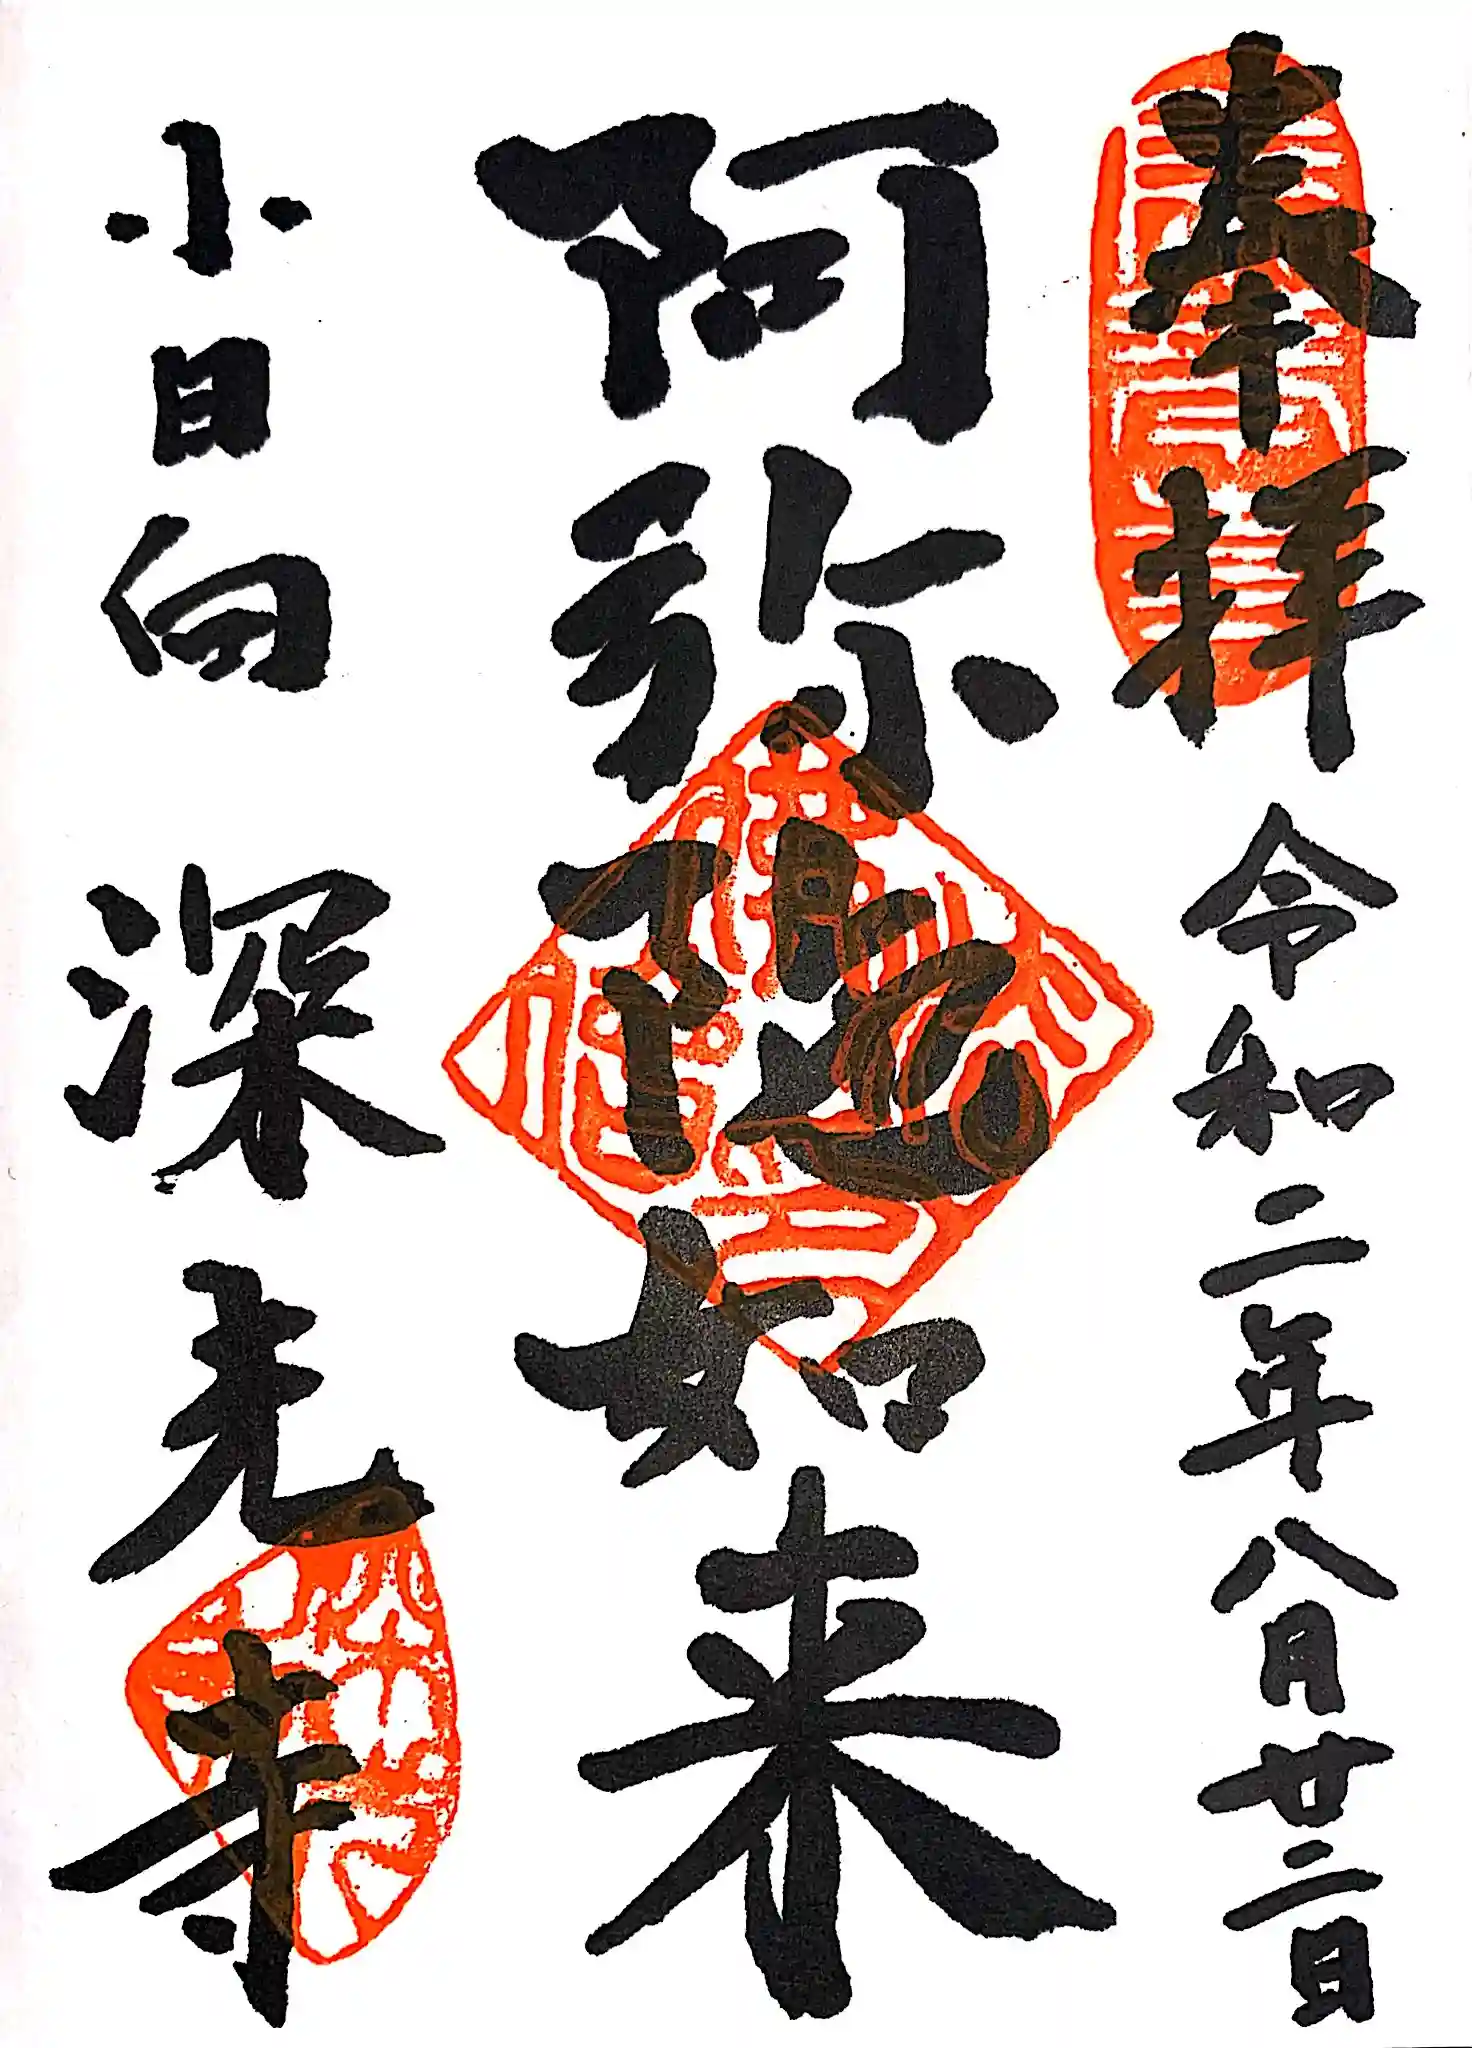 奉拝 令和二年八月廿二日
阿弥陀如来
小日向 深光寺